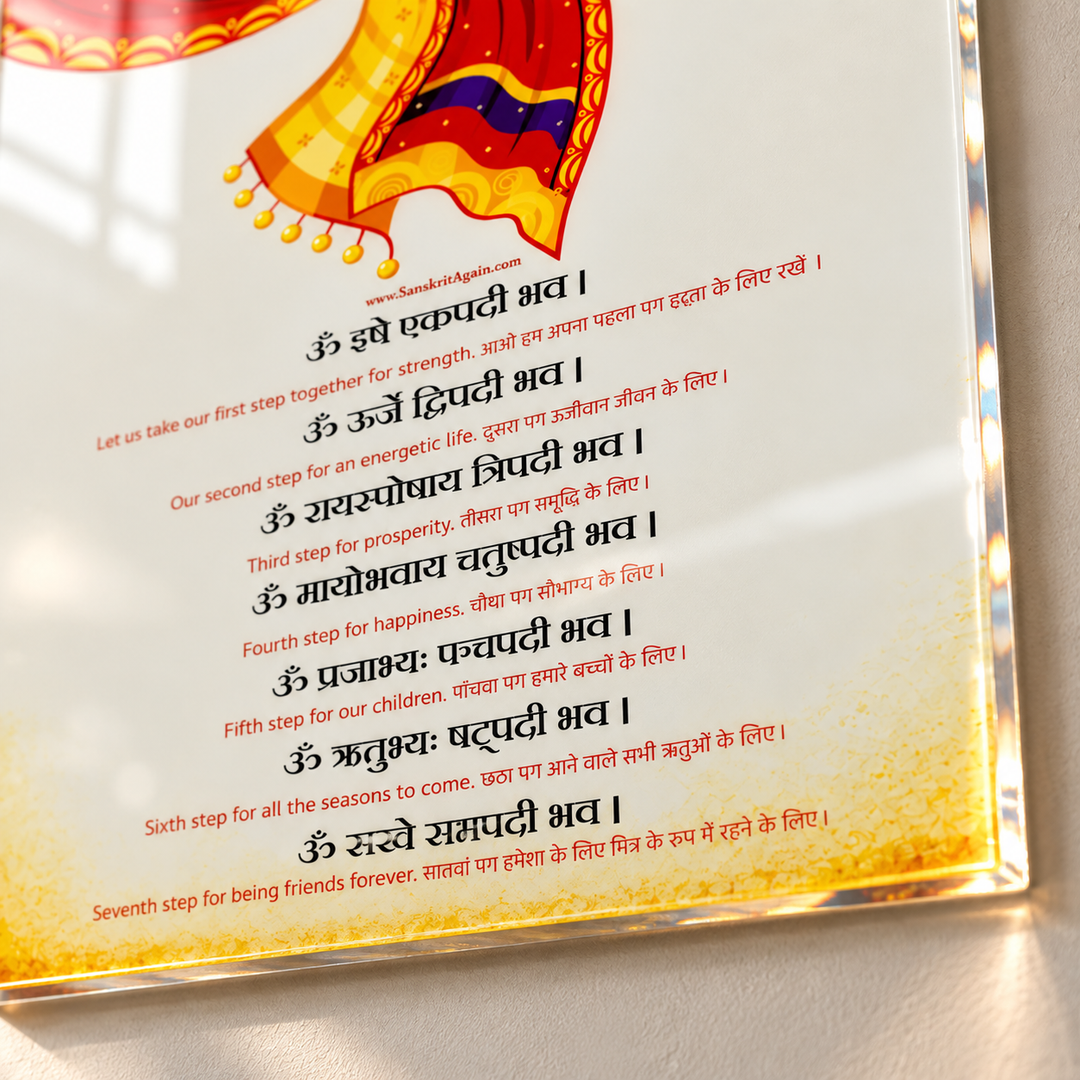 www.SanskritAgain.com
ॐ इषे एकपदी भव ।
Let us take our first step together for strength. आओ हम अपना पहला पग के लिए रखें ।
ॐ ऊर्जे द्विपदी भव ।
Our second step for an energetic life. दुसरा पग ऊजीवान जीवन के लिए ।
ॐ रायस्पोषाय त्रिपदी भव ।
Third step for prosperity. तीसरा पग समृद्धि के लिए ।
ॐ मायोभवाय चतुष्पदी भव ।
Fourth step for happiness. चौथा पग सौभाग्य के लिए ।
ॐ प्रजाभ्यः पञ्चपदी भव ।
Fifth step for our children. पांचवा पग हमारे बच्चों के लिए ।
ॐ ऋतुभ्यः षट्पदी भव ।
Sixth step for all the seasons to come. छठा पग आने वाले सभी ऋतुओं के लिए ।
ॐ सखे समपदी भव ।
Seventh step for being friends forever. सातवां पग हमेशा के लिए मित्र के रुप में रहने के लिए ।